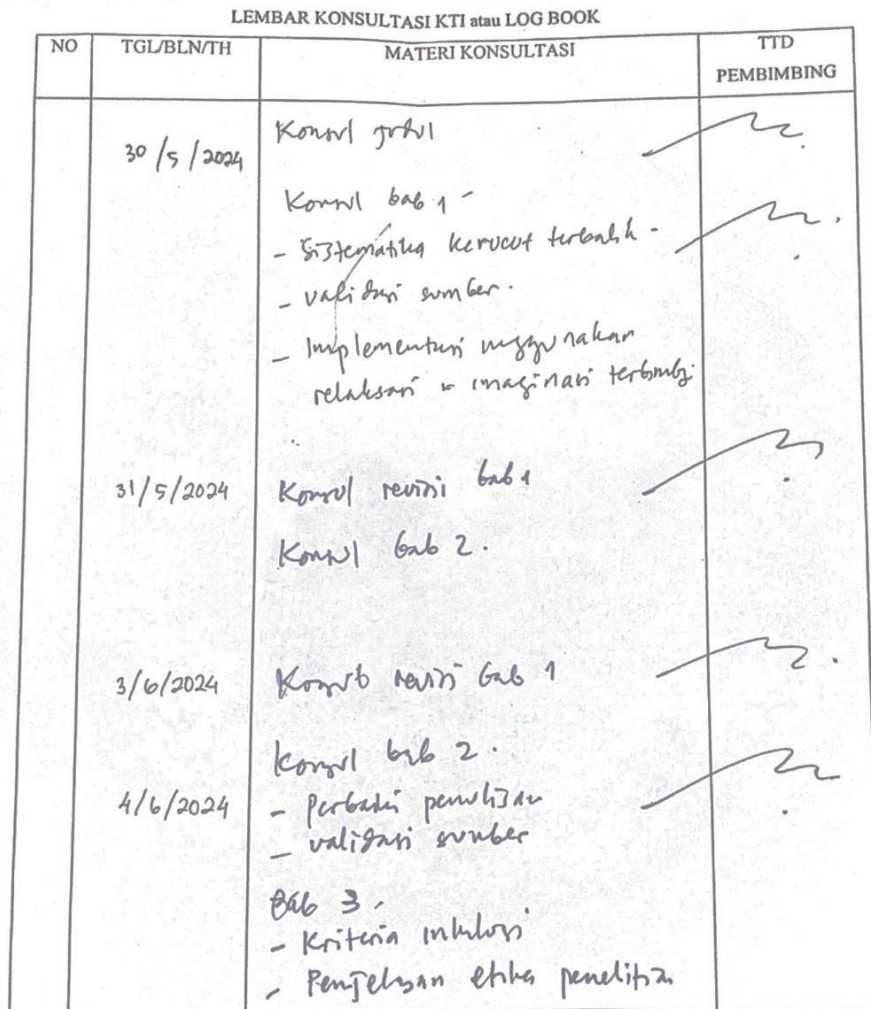 LEMBAR KONSULTASI KTI atau LOG BOOK
NO TGL/BLN/TH MATERI KONSULTASI TTD PEMBIMBING
30/5/2024 Konsul judul
Konsul bab 1
- Sistematika kerucut terbalik
- validasi sumber.
- Implementasi menggunakan
relaksasi imaginasi terbimbing
31/5/2024 Konsul revisi bab 1
Konsul bab 2.
3/6/2024 Konsul revisi bab 1
Konsul bab 2.
4/6/2024 - Perbaiki penulisan
- validasi sumber
Bab 3.
- Kriteria inklusi
- Penjelasan etika penelitian